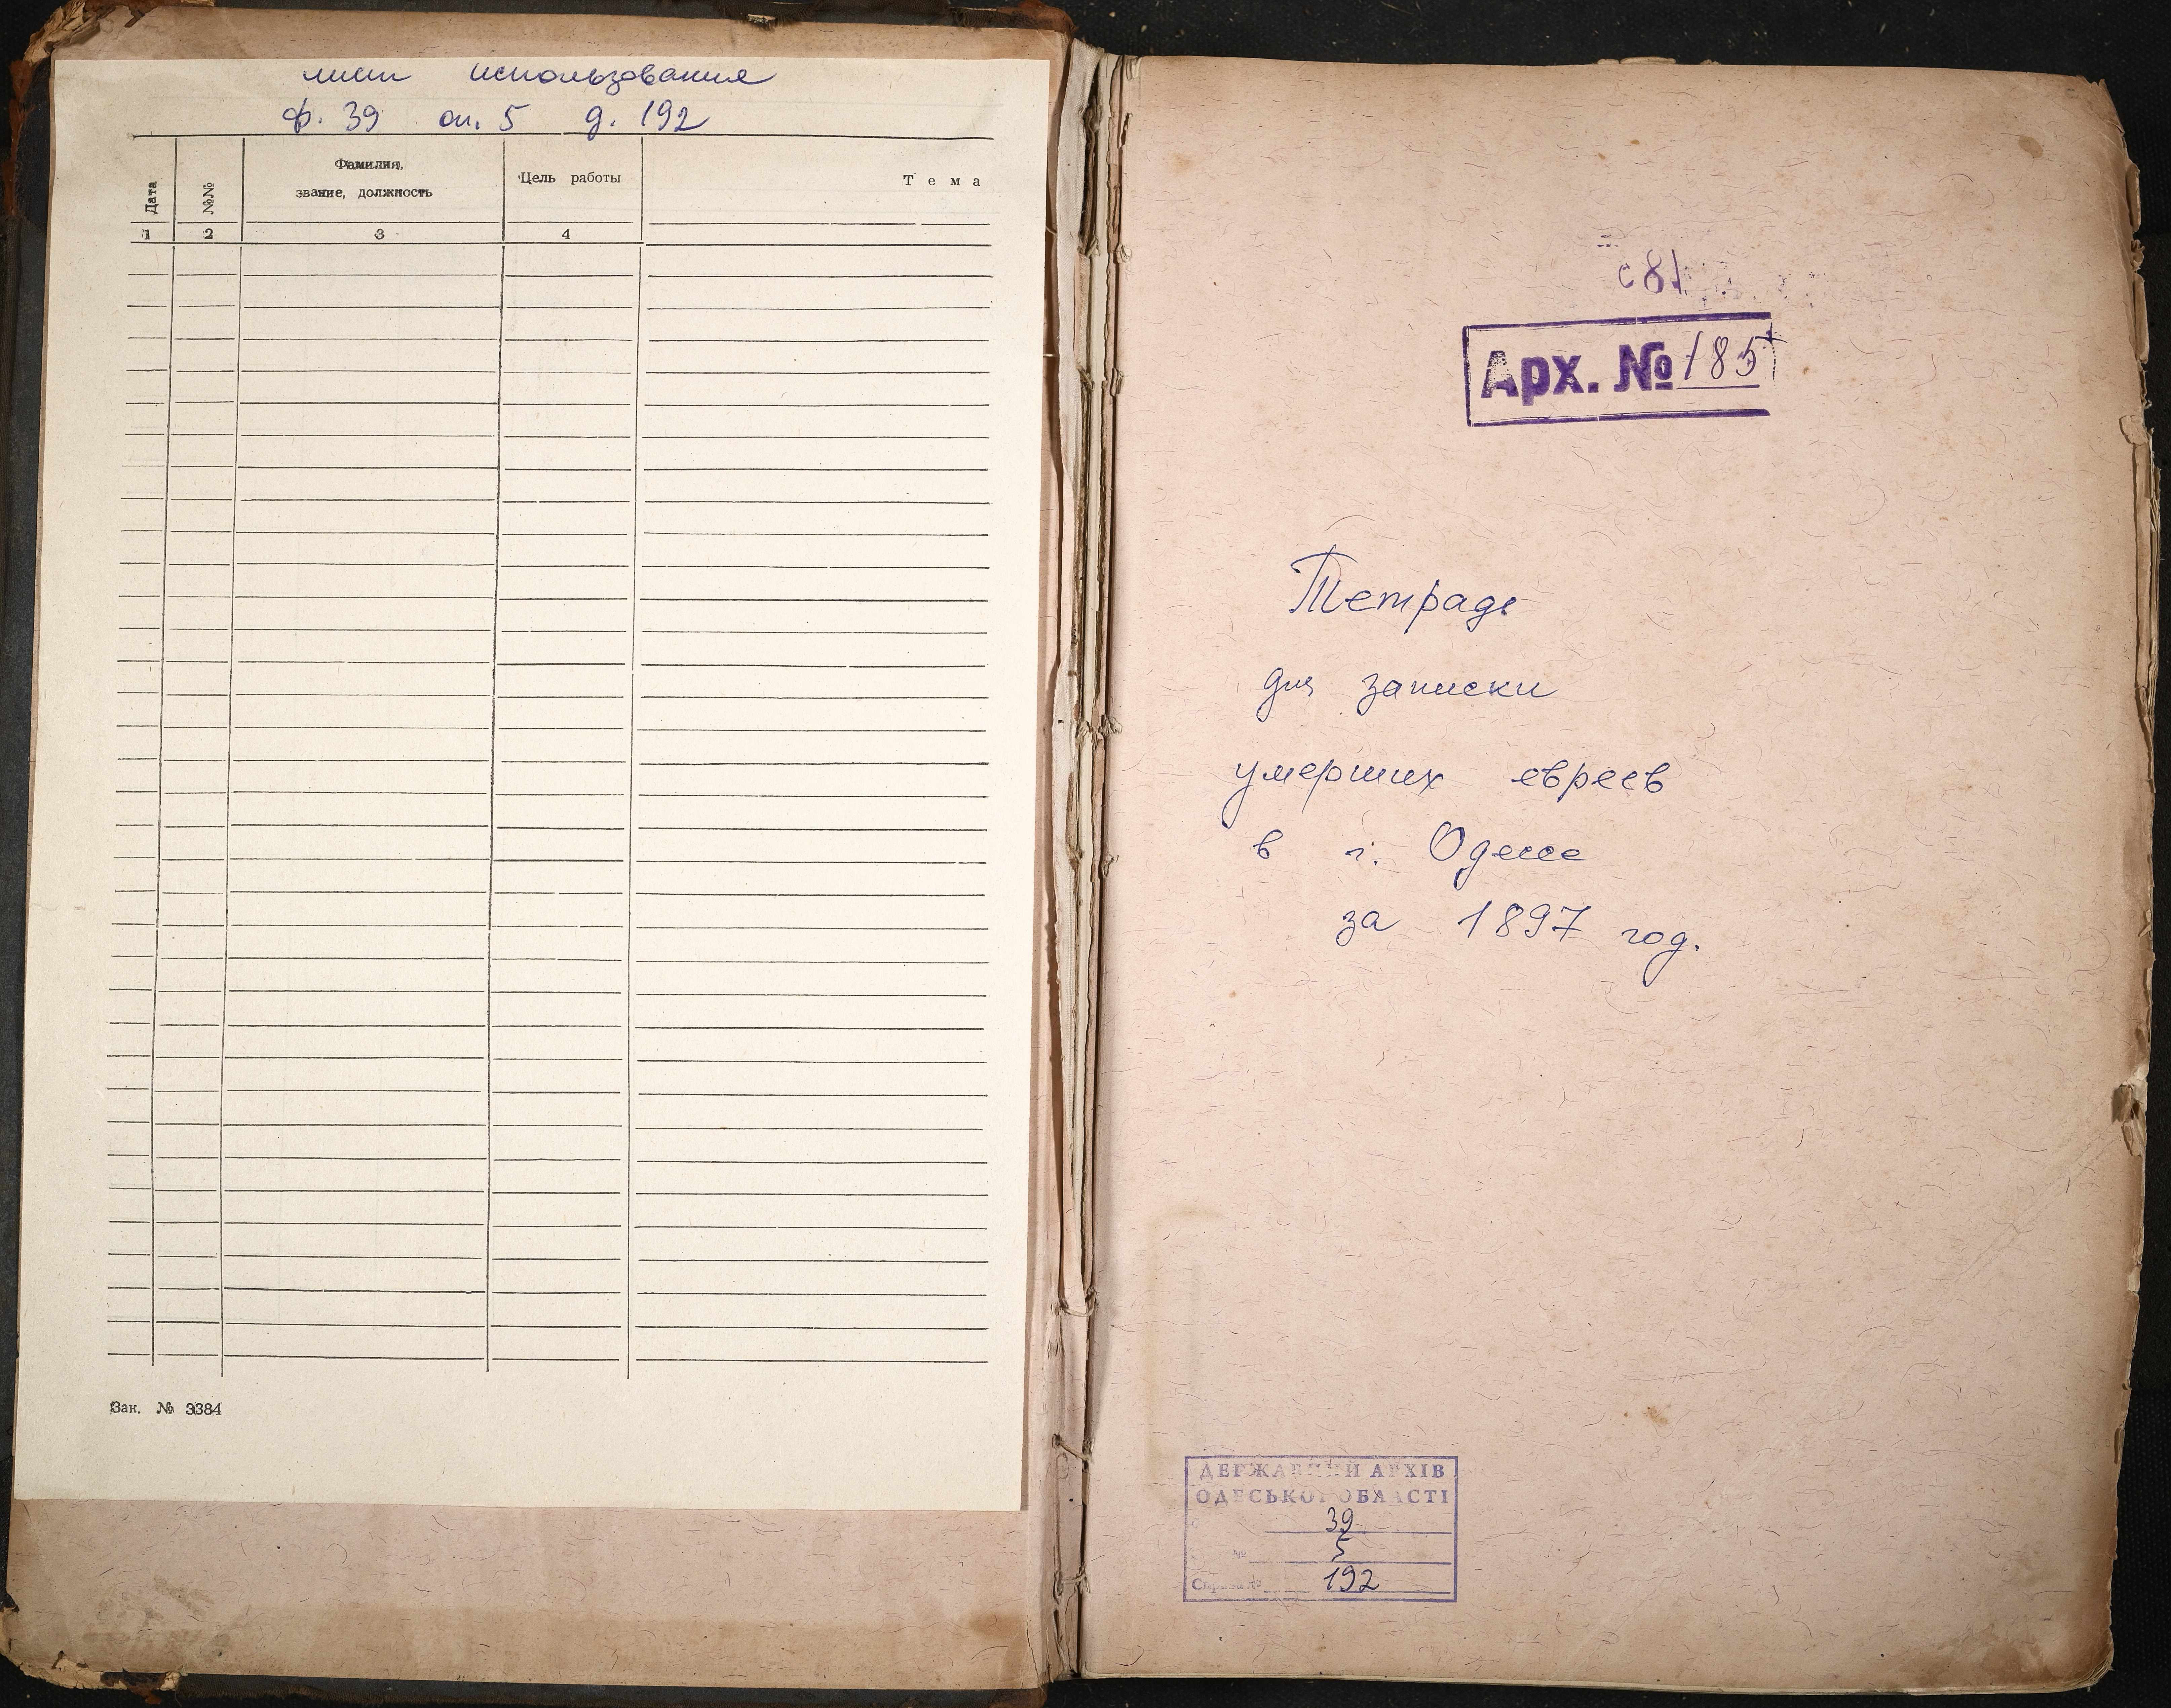 лист использования
ф. 39 оп. 5 д. 192
Дата
№№
Фамилия,
звание, должность
Цель работы
Тема
1 2 3 4
Зак. № 3384
с 81
Арх. № 185
Тетрадь
для записки
умерших евреев
в г. Одессе
за 1897 год.
ДЕРЖАВНИЙ АРХІВ
ОДЕСЬКОЇ ОБЛАСТІ
39
№ 5
Справа № 192